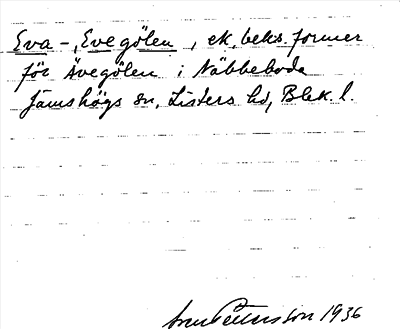 Eva-, Evegölen, ek. beks. former
för Ävegölen i Näbbeboda
Jämshögs sn, Listers hd, Blek. l.
Pettersson 1936